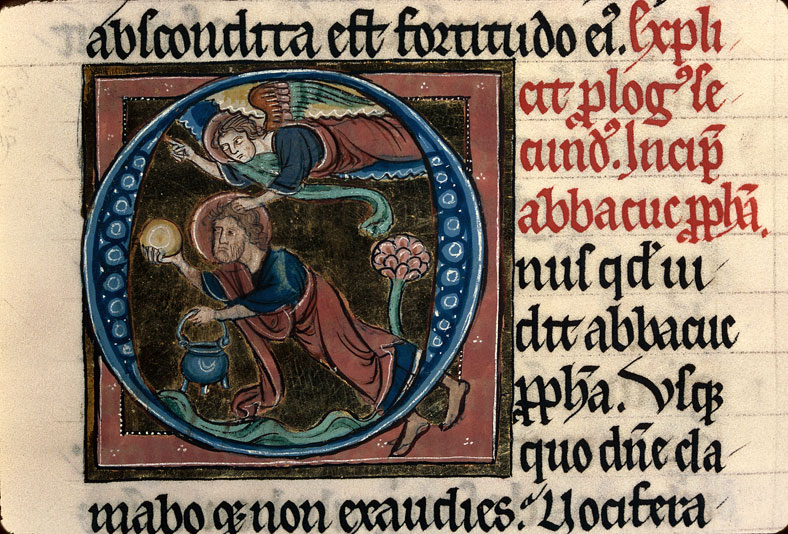 abscondita est fortitudo ei᾿. Expli
cit plog᾿ se
cund᾿. Incip̄
abbacuc pph̄a.
nus qd̄ ui
dit abbacuc
pph̄a. Vsq᾿
quo dn̄e cla
mabo ⁊ non exaudies. Vocifera